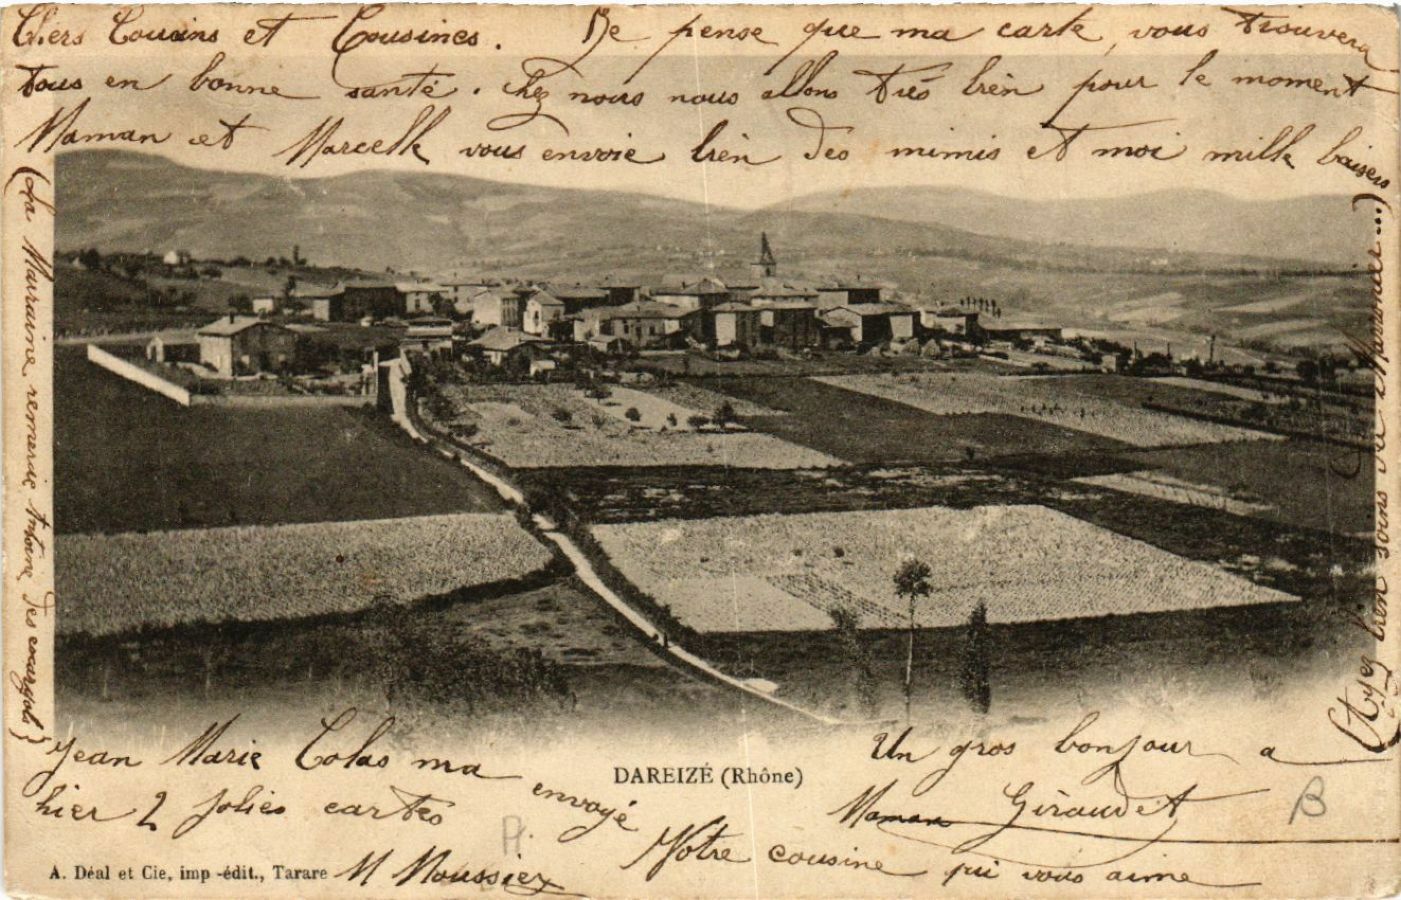 Chers Cousins et Cousines. Je pense que ma carte, vous trouvera
tous en bonne santé. Chez nous nous allons très bien pour le moment
Maman et Marcelle vous envoie bien des mimis et moi mille baisers
(La Marraine remercie Antoine des escargots)
(Ayez bien soins du Marronier...)
Jean Marie Colas ma envoyé
hier 2 jolies cartes
M Moussier
DAREIZÉ (Rhône)
Un gros bonjour a
Maman Giraudet
Votre cousine qui vous aime
A. Déal et Cie, imp -édit., Tarare
B